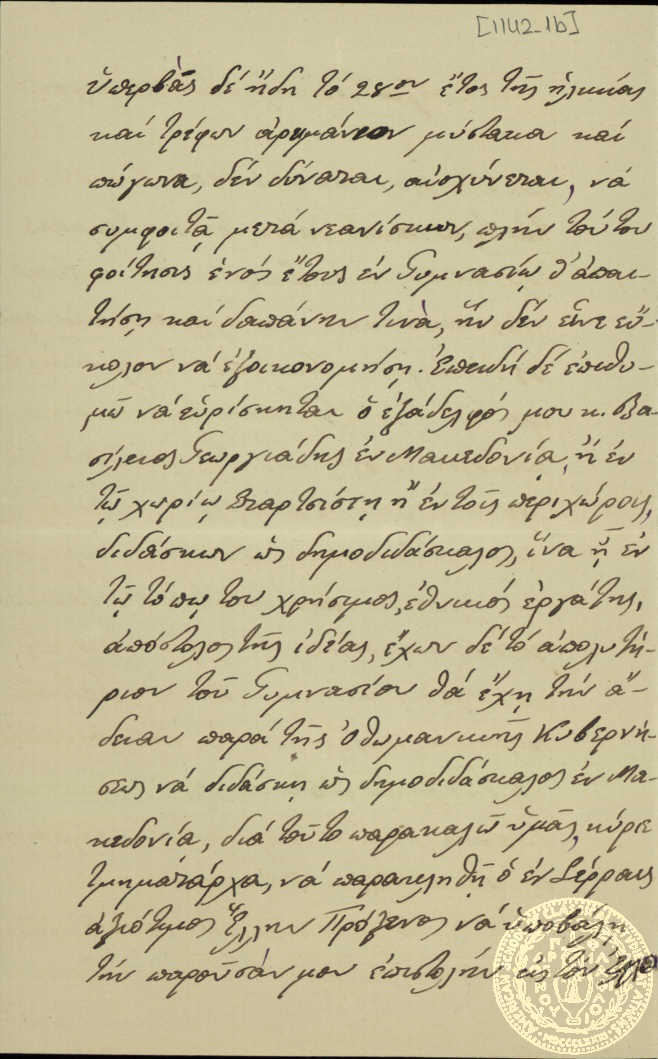 [1142-1b]
ὑπερβὰς δέ ἤδη τό 28ον ἔτος τῆς ἡλικίας
καί τρέφων ἀρειμάνιον μύστακα καί
πώγωνα, δέν δύναται, αἰσχύνεται, νά
συμφοιτᾷ μετά νεανίσκων, πλήν τούτου
φοίτησις ἑνός ἔτους ἐν Γυμνασίῳ θ' ἀπαι-
τήσῃ καί δαπάνην τινὰ, ἥν δέν εἶνε εὔ-
κολον νά ἐξοικονομήσῃ. Ἐπειδή δέ ἐπιθυ-
μῶ νά εὑρίσκηται ὁ ἐξάδελφός μου κ. Βα-
σίλειος Γεωργιάδης ἐν Μακεδονίᾳ, ἤ ἐν
τῷ χωρίῳ Σταρτσίστῃ ἤ ἐν τοῖς περιχώροις,
διδάσκων ὡς δημοδιδάσκαλος, ἵνα ᾖ ἐν
τῷ τόπῳ του χρήσιμος, ἐθνικός ἐργάτης,
ἀπόστολος τῆς ἰδέας, ἔχων δέ τό ἀπολυτή-
ριον τοῦ Γυμνασίου θά ἔχῃ τήν ἄ-
δειαν παρά τῆς Ὀθωμανικῆς Κυβερνή-
σεως νά διδάσκῃ ὡς δημοδιδάσκαλος ἐν Μα-
κεδονίᾳ, διά τοῦτο παρακαλῶ ὑμᾶς, κύριε
τμηματάρχα, νά παρακληθῇ ὁ ἐν Σέρραις
ἀξιότιμος Ἕλλην Πρόξενος νά ὑποβάλῃ
τήν παροῦσάν μου ἐπιστολήν εἰς τόν